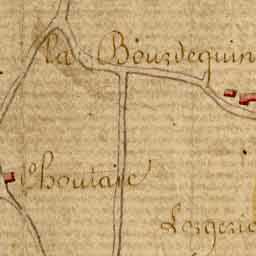 la Bourdequin
Choutaie
Lorgerie